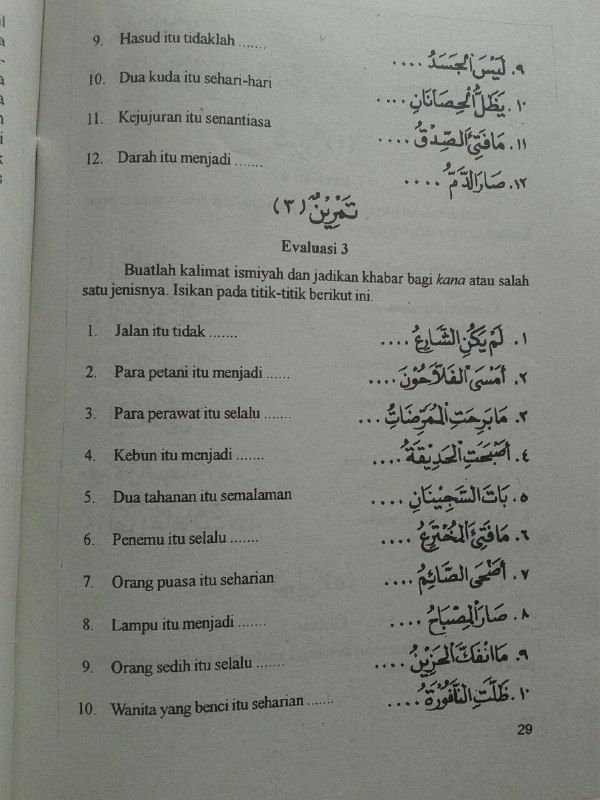 9. Hasud itu tidaklah ....... ٩. لَيْسَ الْجَسَدُ ....
10. Dua kuda itu sehari-hari ١٠. يَظَلُّ الْحِصَانَانِ ....
11. Kejujuran itu senantiasa ١١. مَافَتِئَ الصِّدْقُ ....
12. Darah itu menjadi ....... ١٢. صَارَ الدَّمُ ....
تَمْرِيْنٌ (٣)
Evaluasi 3
Buatlah kalimat ismiyah dan jadikan khabar bagi kana atau salah
satu jenisnya. Isikan pada titik-titik berikut ini.
1. Jalan itu tidak ....... ١. لَمْ يَكُنِ الشَّارِعُ ....
2. Para petani itu menjadi ...... ٢. أَمْسَى الْفَلَاَّحُوْنَ ....
3. Para perawat itu selalu ....... ٣. مَابَرِحَتِ الْمُمَرِّضَاتُ ...
4. Kebun itu menjadi ....... ٤. أَصْبَحَتِ الْحَدِيْقَةُ ....
5. Dua tahanan itu semalaman ٥. بَاتَ السَّجِيْنَانِ ....
6. Penemu itu selalu ....... ٦. مَافَتِئَ الْمُخْتَرِعُ ....
7. Orang puasa itu seharian ٧. أَضْحَى الصَّائِمُ ....
8. Lampu itu menjadi ....... ٨. صَارَ الْمِصْبَاحُ ....
9. Orang sedih itu selalu ....... ٩. مَاانْفَكَّ الْحَزِيْنُ ....
10. Wanita yang benci itu seharian ....... ١٠. ظَلَّتِ النَّفُوْرَةُ ....
29